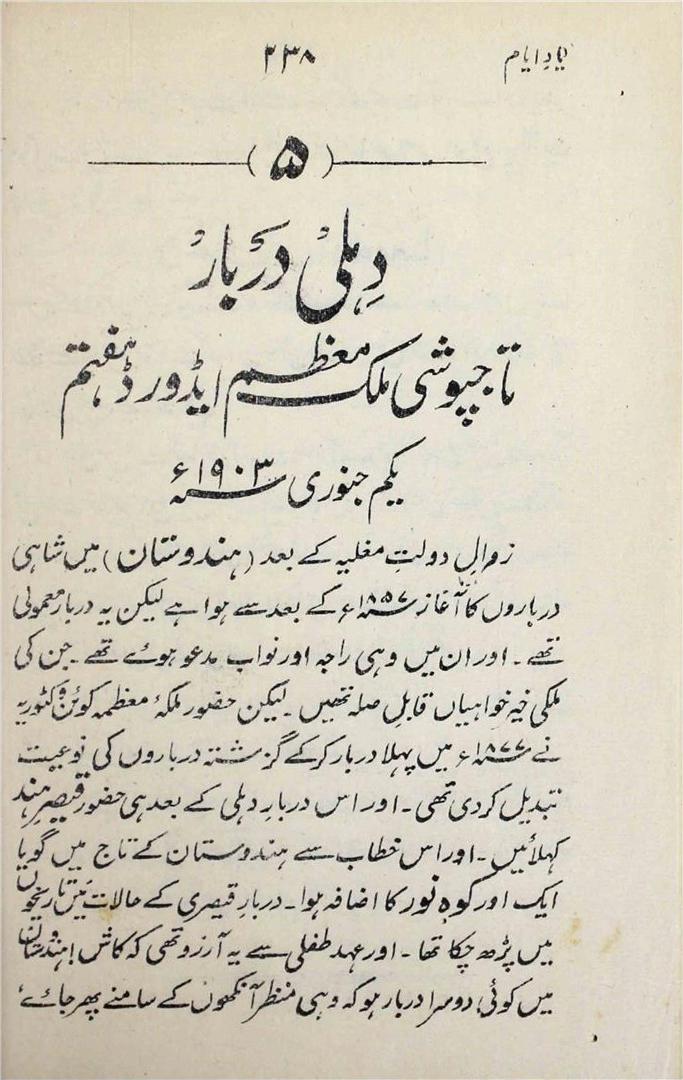 یادِ ایام ۲۳۸
(۵)
دِہلیْ دَربارْ
تاجپوشی ملک معظم ایڈورڈ ہفتم
یکم جنوری سنہ ۱۹۰۳ء
زوالِ دولتِ مغلیہ کے بعد (ہندوستان) میں شاہی
درباروں کا آغاز سنہ ۱۸۵۷ء کے بعد سے ہوا ہے لیکن یہ دربار معمولی
تھے۔ اور ان میں وہی راجہ اور نواب مدعو ہوئے تھے۔ جن کی
ملکی خیر خواہیاں قابلِ صلہ تھیں۔ لیکن حضور ملکۂ معظمہ کوئن وکٹوریہ
نے سنہ ۱۸۷۷ء میں پہلا دربار کرکے گزشتہ درباروں کی نوعیت
تبدیل کردی تھی۔ اور اس دربارِ دہلی کے بعد ہی حضور قیصرِ ہند
کہلائیں۔ اور اس خطاب سے ہندوستان کے تاج میں گویا
ایک اور کوہ نور کا اضافہ ہوا۔ دربارِ قیصری کے حالات مَیں تاریخوں
میں پڑھ چکا تھا۔ اور عہدِ طفلی سے یہ آرزو تھی کہ کاش! ہندوستان
میں کوئی دوسرا دربار ہو کہ وہی منظر آنکھوں کے سامنے پھر جائے،